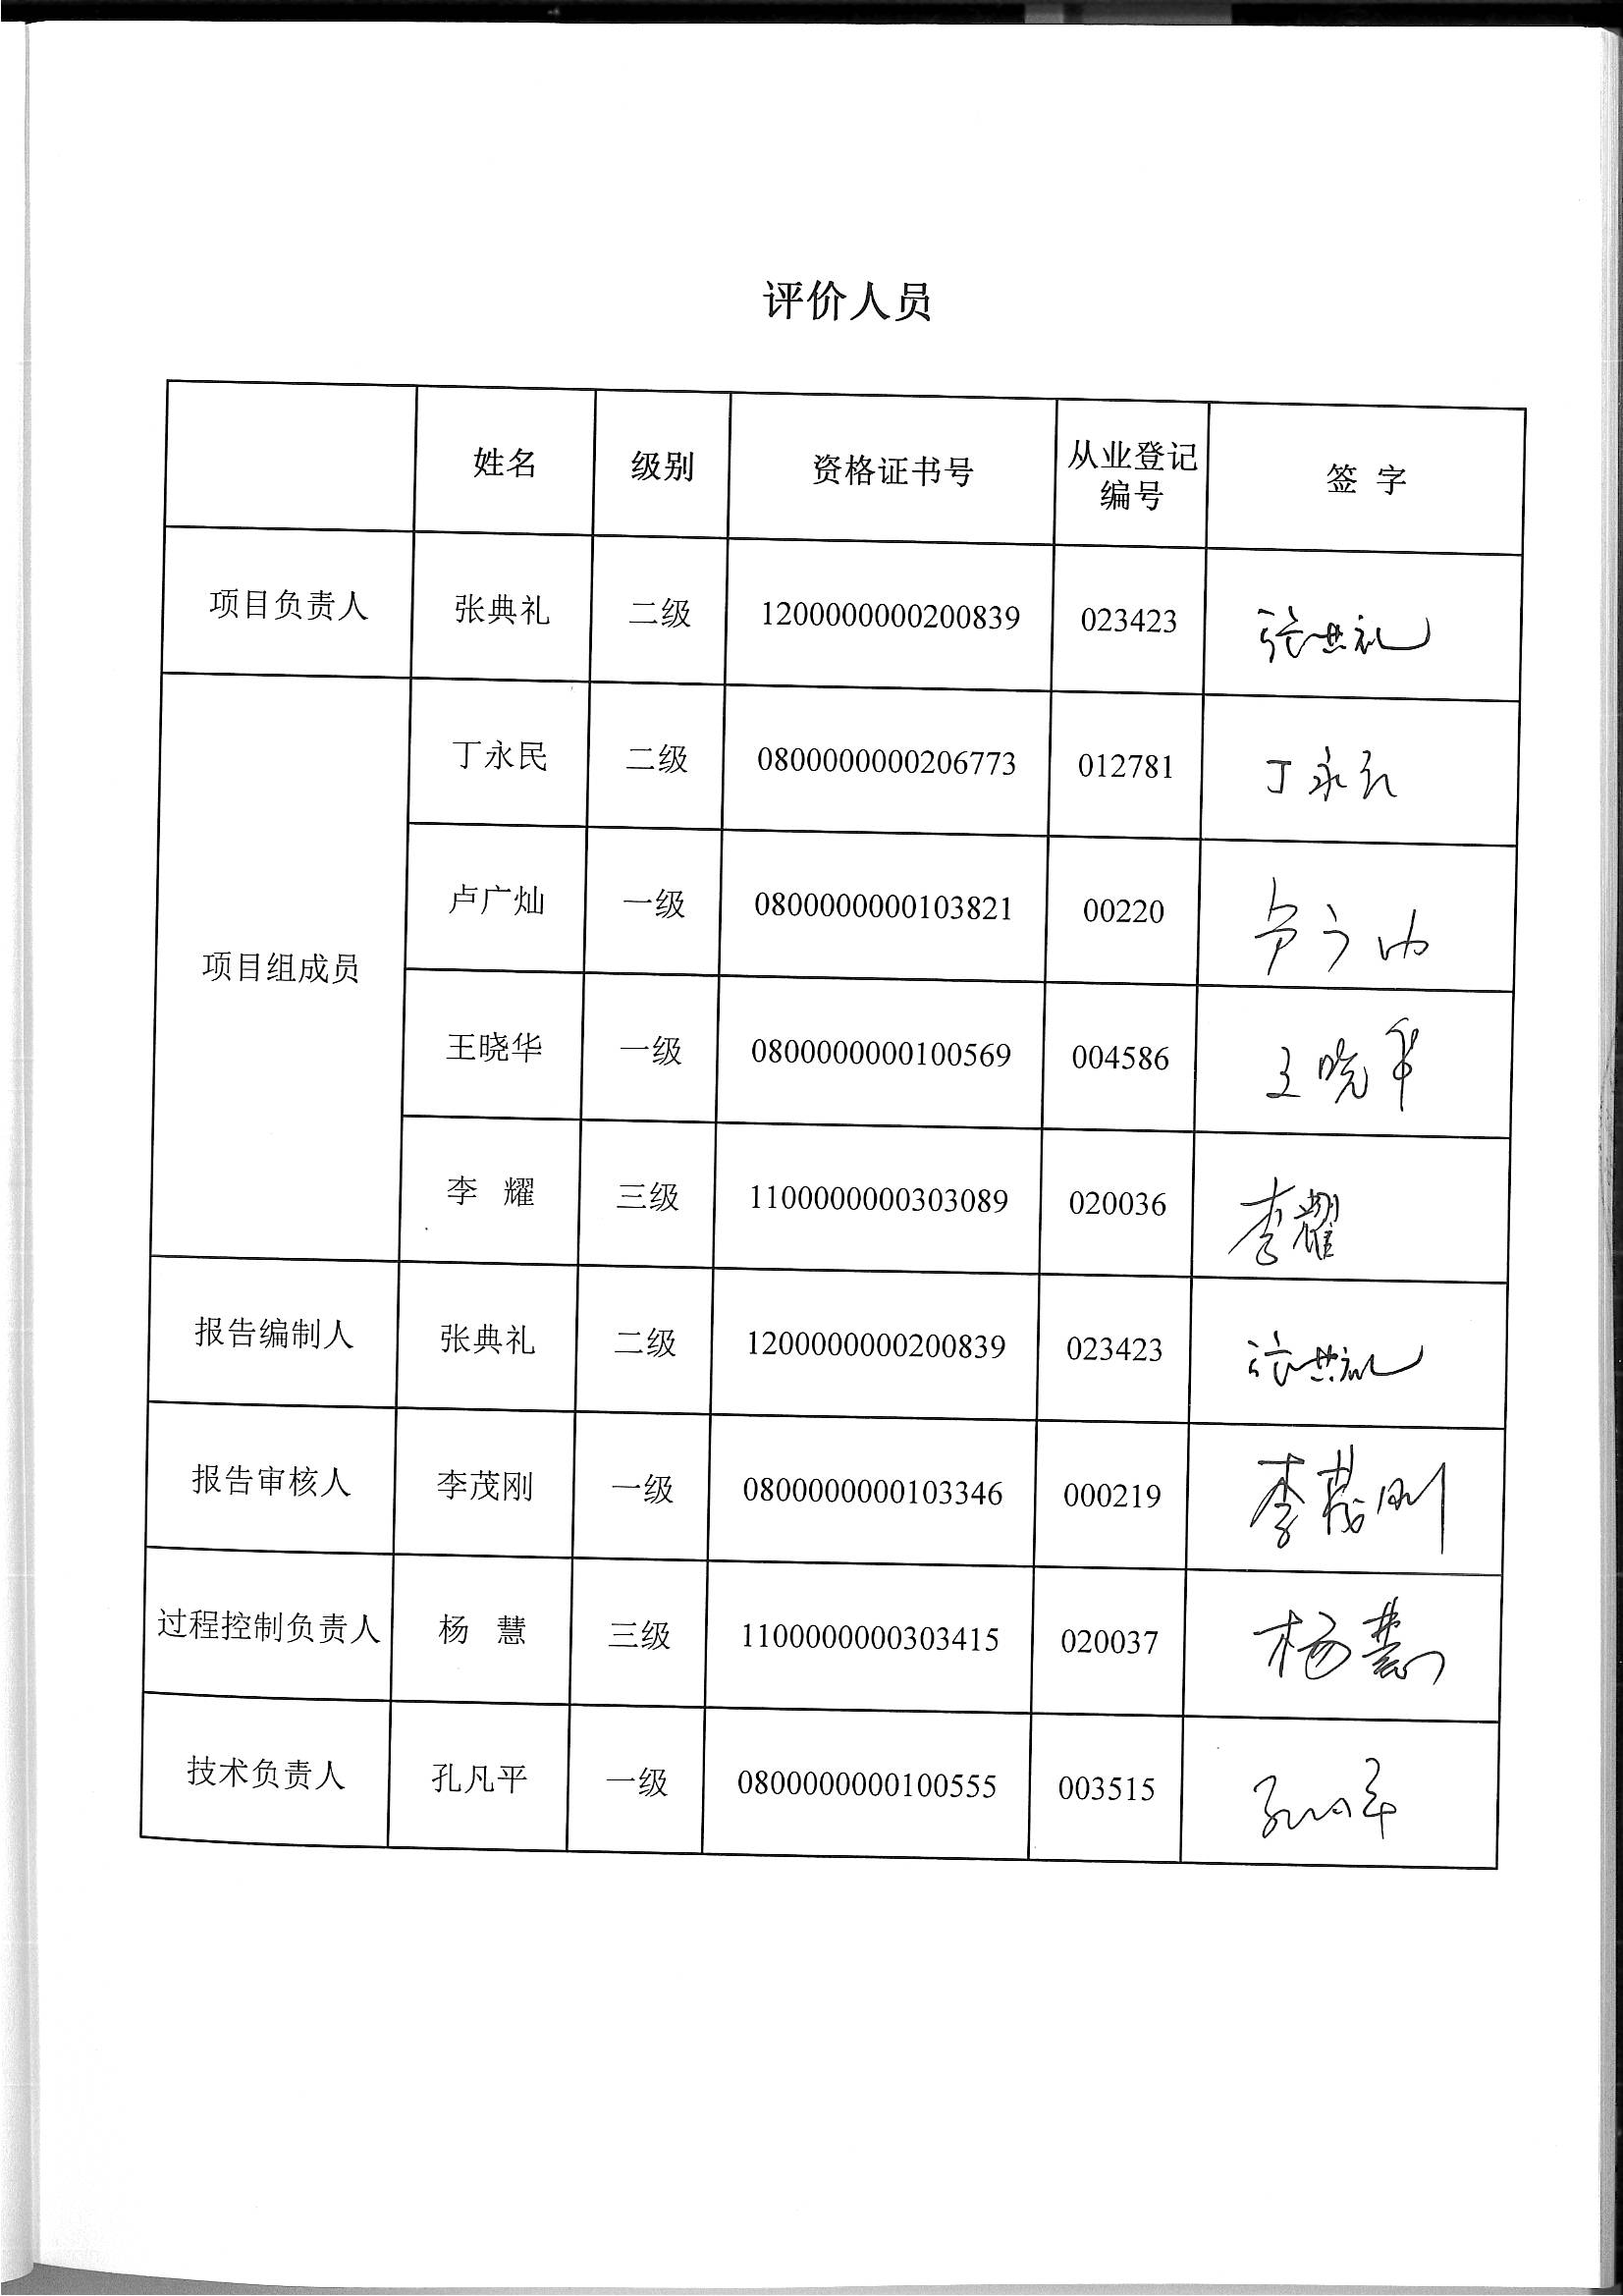 评价人员
姓名 级别 资格证书号 从业登记编号 签 字
项目负责人 张典礼 二级 1200000000200839 023423 张典礼
项目组成员
丁永民 二级 0800000000206773 012781 丁永民
卢广灿 一级 0800000000103821 00220 卢广灿
王晓华 一级 0800000000100569 004586 王晓华
李 耀 三级 1100000000303089 020036 李耀
报告编制人 张典礼 二级 1200000000200839 023423 张典礼
报告审核人 李茂刚 一级 0800000000103346 000219 李茂刚
过程控制负责人 杨 慧 三级 1100000000303415 020037 杨慧
技术负责人 孔凡平 一级 0800000000100555 003515 孔凡平